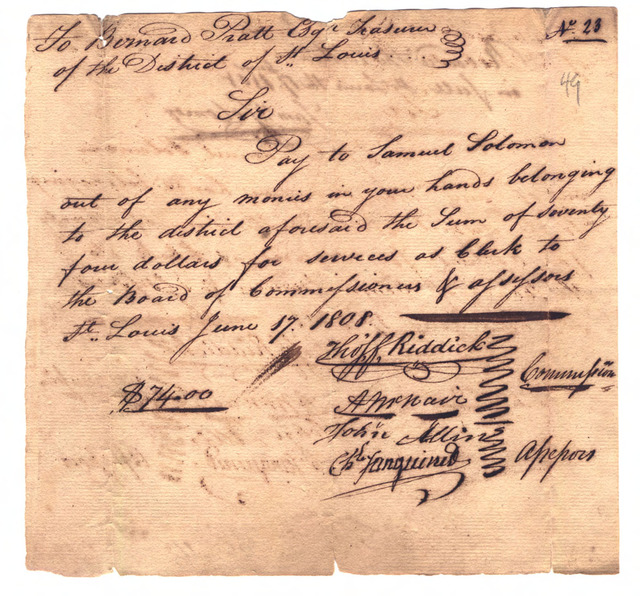 To Bernard Pratt Esqr Treasurer
of the District of St. Louis
No. 23
49
Sir
Pay to Samuel Solomon
out of any monies in your hands belonging
to the district aforesaid the Sum of seventy
four dollars for services as Clerk to
the Board of Commissioners & assessors
St. Louis June 17. 1808.
$74.00
Thos F Riddick
John Allin
Commission
Assessors